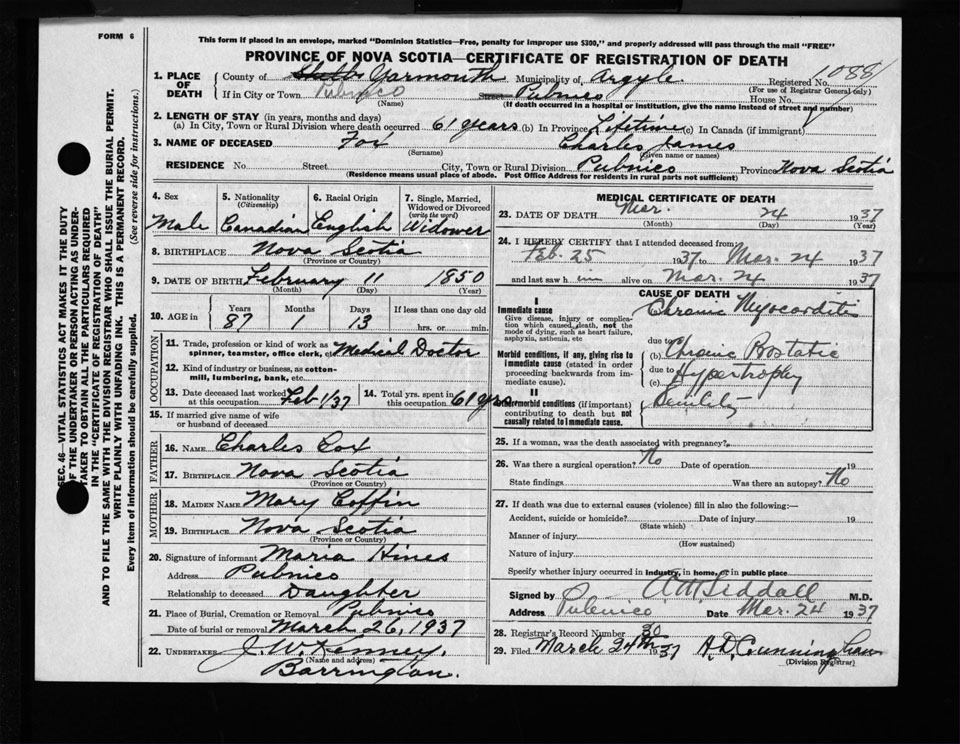 FORM 6
This form if placed in an envelope, marked "Dominion Statistics—Free, penalty for improper use $300," and properly addressed will pass through the mail "FREE"
PROVINCE OF NOVA SCOTIA—CERTIFICATE OF REGISTRATION OF DEATH
1. PLACE OF DEATH
County of Yarmouth Municipality of Argyle Registered No. 1088
(For use of Registrar General only)
If in City or Town Pubnico Street Pubnico House No.
(Name) (If death occurred in a hospital or institution, give the name instead of street and number)
2. LENGTH OF STAY (in years, months and days)
(a) In City, Town or Rural Division where death occurred 61 years (b) In Province Lifetime (c) In Canada (if immigrant)
3. NAME OF DECEASED Fox Charles James
(Surname) (Given name or names)
RESIDENCE No. Street City, Town or Rural Division Pubnico Province Nova Scotia
(Residence means usual place of abode. Post Office Address for residents in rural parts not sufficient)
4. Sex
Male
5. Nationality
(Citizenship)
Canadian
6. Racial Origin
English
7. Single, Married, Widowed or Divorced
(write the word)
Widower
8. BIRTHPLACE Nova Scotia
(Province or Country)
9. DATE OF BIRTH February 11 1850
(Month) (Day) (Year)
10. AGE in
Years Months Days If less than one day old
87 1 13 hrs. or min.
OCCUPATION
11. Trade, profession or kind of work as spinner, teamster, office clerk, etc. Medical Doctor
12. Kind of industry or business, as cotton-mill, lumbering, bank, etc.
13. Date deceased last worked at this occupation Feb 1/37
14. Total yrs. spent in this occupation 61 yrs
15. If married give name of wife or husband of deceased
FATHER
16. NAME Charles Cox
17. BIRTHPLACE Nova Scotia
(Province or Country)
MOTHER
18. MAIDEN NAME Mary Coffin
19. BIRTHPLACE Nova Scotia
(Province or Country)
20. Signature of informant Maria Hines
Address Pubnico
Relationship to deceased Daughter
21. Place of Burial, Cremation or Removal Pubnico
Date of burial or removal March 26, 1937
22. UNDERTAKER J. W. Kenney,
(Name and address)
Barrington.
MEDICAL CERTIFICATE OF DEATH
23. DATE OF DEATH Mar. 24 1937
(Month) (Day) (Year)
24. I HEREBY CERTIFY that I attended deceased from:
Feb. 25 1937 to Mar. 24 1937
and last saw him alive on Mar. 24 1937
CAUSE OF DEATH
I
Immediate cause
Give disease, injury or complication which caused death, not the mode of dying, such as heart failure, asphyxia, asthenia, etc
Chronic Myocarditis
due to
Morbid conditions, if any, giving rise to immediate cause (stated in order proceeding backwards from immediate cause).
(b) Chronic Prostatic
due to Hypertrophy
(c)
II
Other morbid conditions (if important) contributing to death but not causally related to immediate cause.
Senility
25. If a woman, was the death associated with pregnancy?
26. Was there a surgical operation? No Date of operation 19
State findings Was there an autopsy? No
27. If death was due to external causes (violence) fill in also the following:—
Accident, suicide or homicide? Date of injury 19
(State which)
Manner of injury
(How sustained)
Nature of injury
Specify whether injury occurred in industry, in home, or in public place
Signed by A M Siddall M.D.
Address Pubnico Date Mar. 24 1937
28. Registrar's Record Number 30
29. Filed March 24th 1937 H. D. Cunningham
(Division Registrar)
SEC. 46—VITAL STATISTICS ACT MAKES IT THE DUTY
OF THE UNDERTAKER OR PERSON ACTING AS UNDER-
TAKER TO OBTAIN ALL THE PARTICULARS REQUIRED
IN THE "CERTIFICATE OF REGISTRATION OF DEATH"
AND TO FILE THE SAME WITH THE DIVISION REGISTRAR WHO SHALL ISSUE THE BURIAL PERMIT.
WRITE PLAINLY WITH UNFADING INK. THIS IS A PERMANENT RECORD.
Every item of information should be carefully supplied. (See reverse side for instructions.)